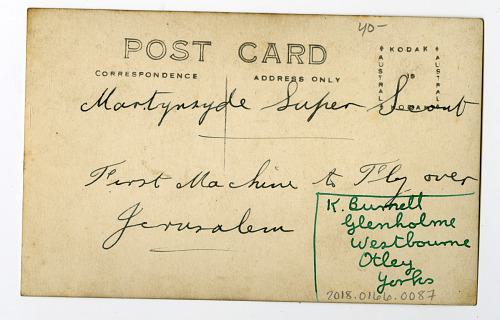 40-
POST CARD
CORRESPONDENCE
ADDRESS ONLY
KODAK
AUSTRAL
IS
AUSTRAL
Martynsyde Super Scout
First Machine to Fly over
Jerusalem
K. Burnell
Glenholme
Westbourne
Otley
Yorks
2018.0166.0087